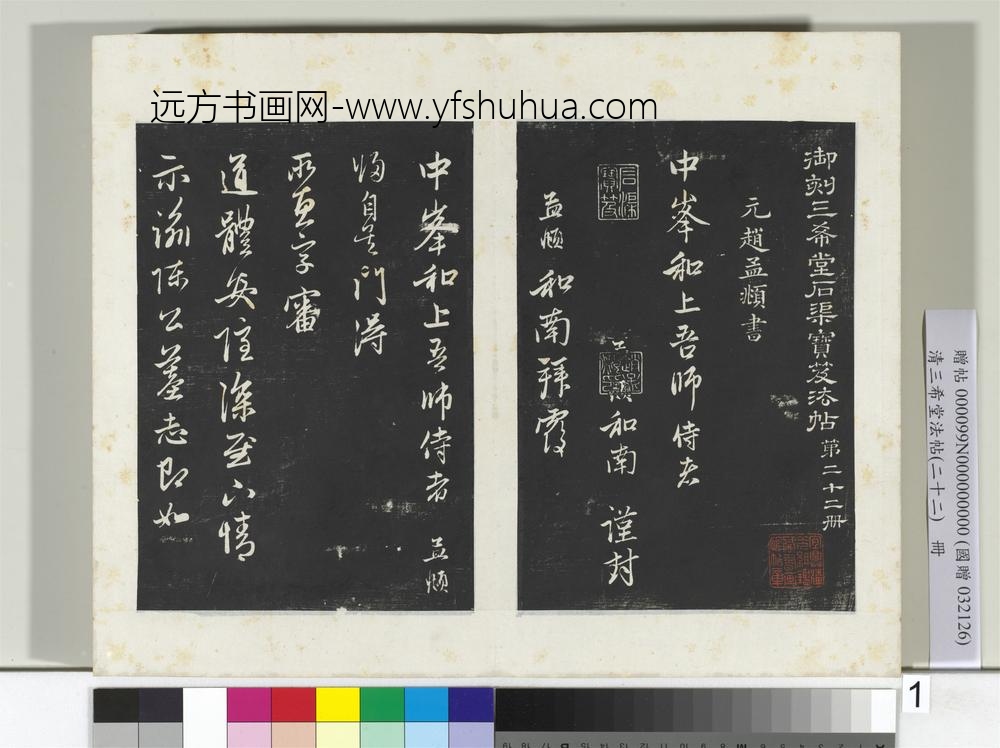 远方书画网-www.yfshuhua.com
御刻三希堂石渠寶笈法帖 第二十二册
元趙孟頫書
中峯和上吾師侍者
孟頫和南 謹封
石渠寶笈
孟頫和南拜覆
中峯和上吾師侍者 孟頫
得
所惠字審
道體安隱深慰下情
示諭陳公墓志即如
贈帖 000099N000000000 (國贈 032126)
清三希堂法帖(二十二) 冊
1